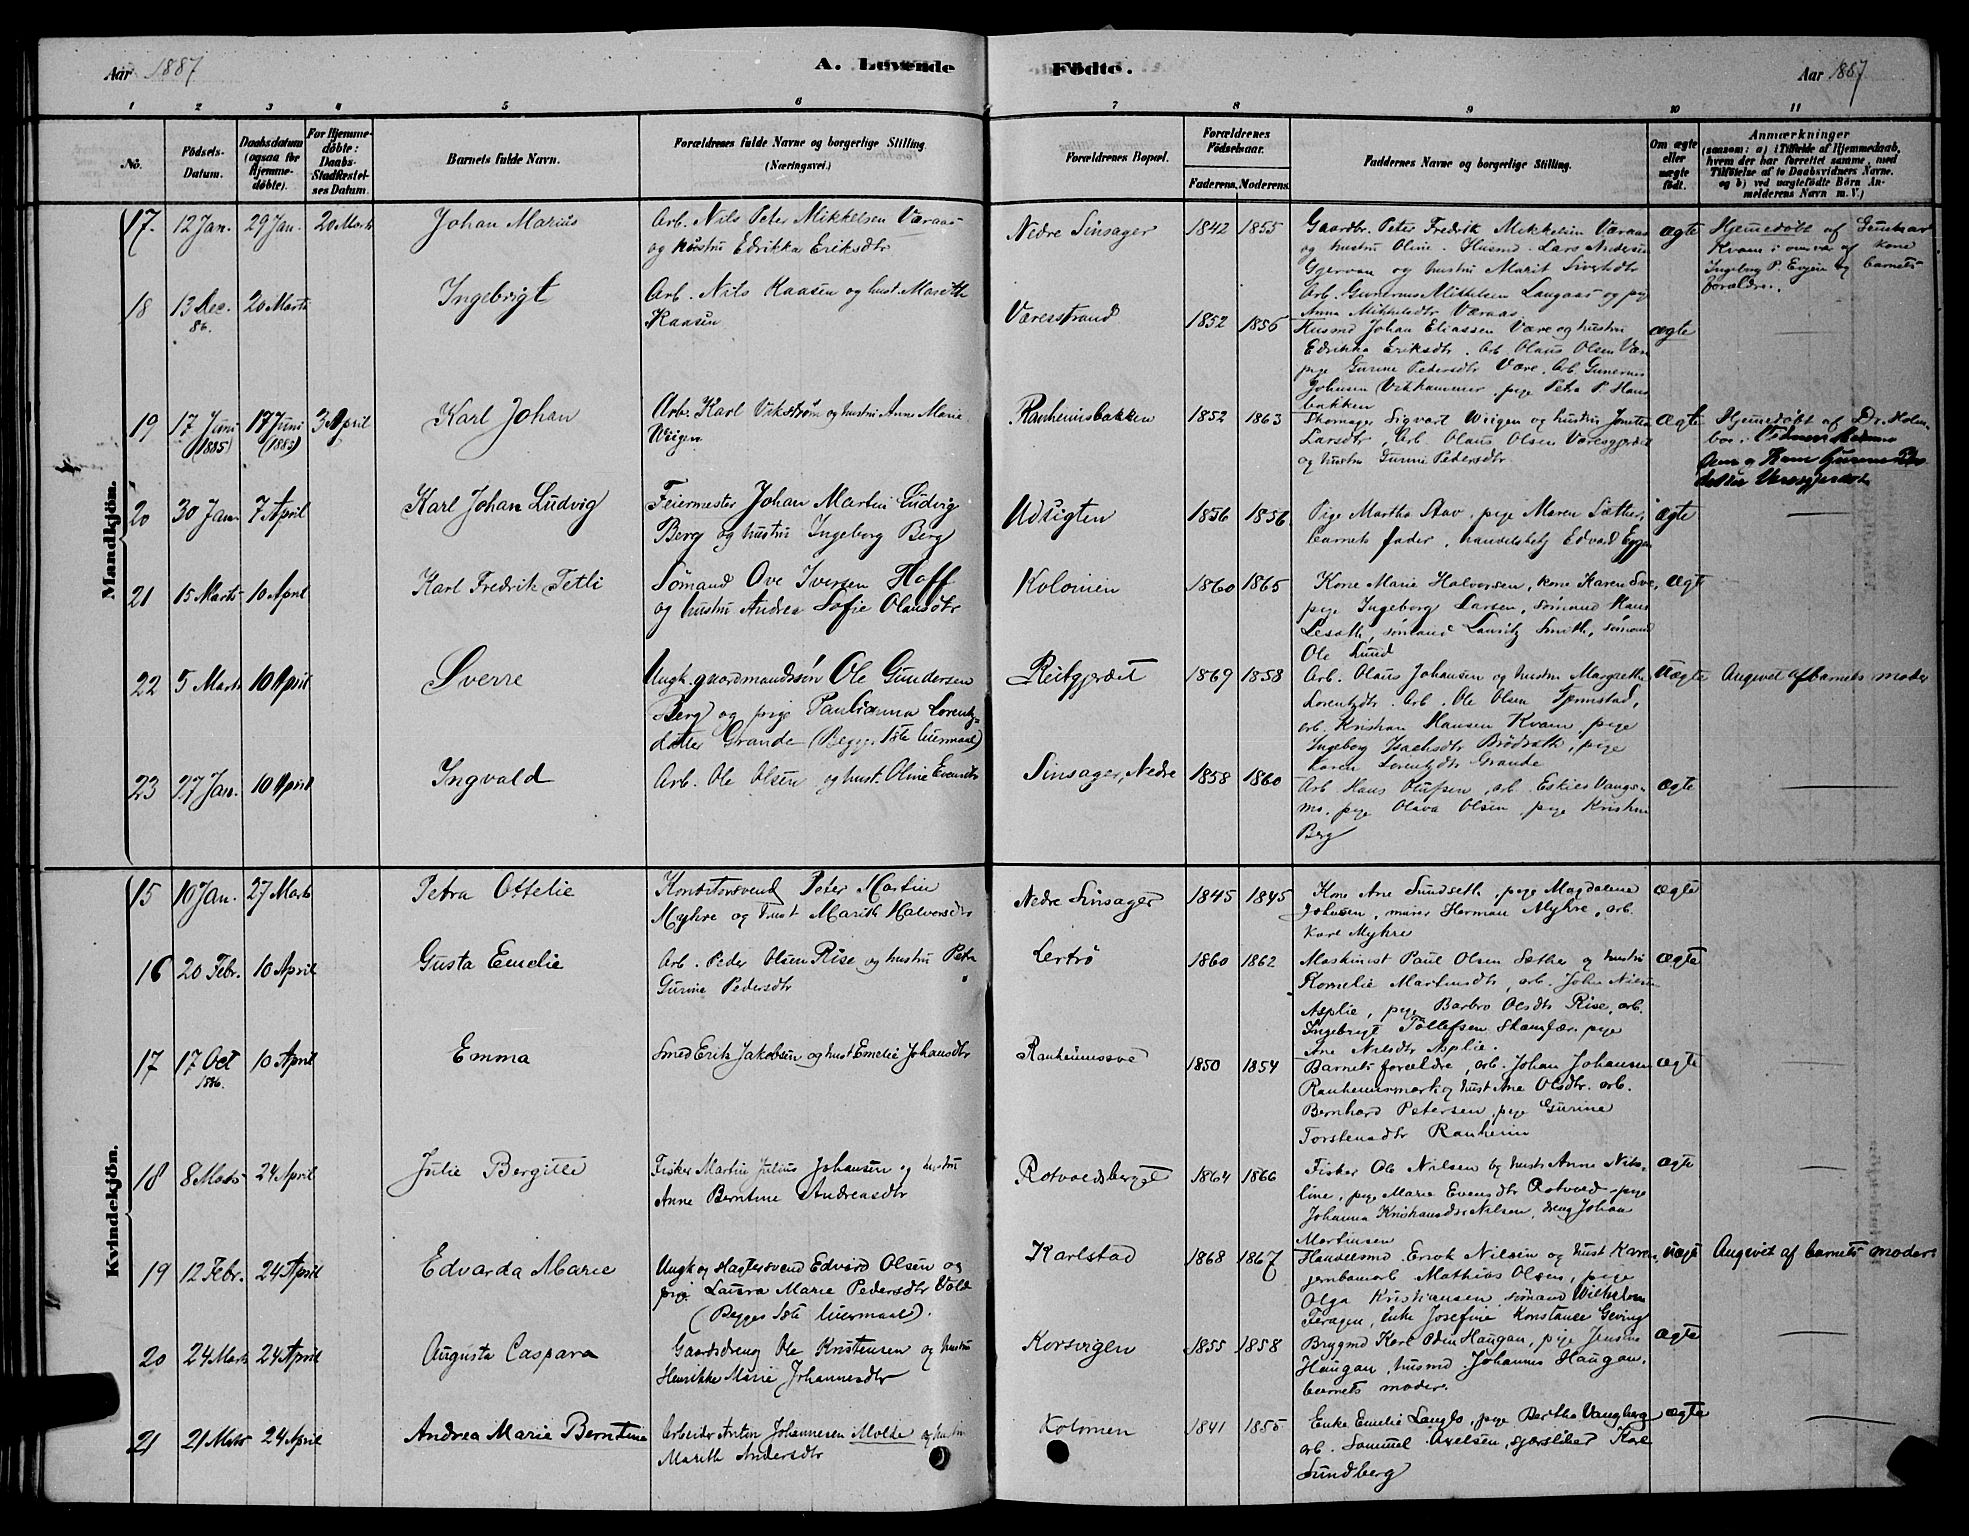 Aar 1887
A. Levende
Fødte.
Aar 1887
1 2 3 4 5 6 7 8 9 10 11
No.
Fødsels-Datum.
Daabsdatum (ogsaa for Hjemmedøbte).
For Hjemmedøbte: Daabs-Stadfæstelses Datum.
Barnets fulde Navn.
Forældrenes fulde Navne og borgerlige Stilling. (Næringsvei.)
Forældrenes Bopæl.
Forældrenes Fødselsaar.
Faderens. Moderens.
Faddernes Navne og borgerlige Stilling.
Om ægte eller uægte født.
Anmærkninger
(saasom: a) i Tilfælde af Hjemmedaab,
hvem der har forrettet samme, med
Tilføielse af to Daabsvidners Navne.
og b) ved uægtefødte Børn Anmelderens Navn m. V.)
Mandkjön.
17. 12 Jan. 29 Jan. 20 Marts Johan Marius
Arb. Nils Peter Mikkelsen Væraas
og hustru Edrikka Eriksdtr
Nedre Sinsager 1842 1855
Gaardbr. Peter Fredrik Mikkelsen Væraas
og hustru Oline. Husmd. Lars Andersen
Gjervan og hustru Marit Sivertsdtr
Arb. Gunerius Mikkelsen Laugaas og pige
Anna Mikkelsdtr Væraas.
ægte
Hjemmedøbt af Gunnar
Kvam i overvær af kone
Ingeborg P. Evjen og barnets
forældre.
18 13 Dec. 86. 20 Marts Ingebrigt
Arb. Nils Kaasen og hust. Marith
Kaasen
Væresstrand 1852 1856
Husmd Johan Eliassen Være og hustru
Edrikka Eriksdtr. Arb. Olaus Olsen Være
pige Gurine Pedersdtr Være. Arb. Gunerius
Johnsen Vikhammer. pige Petra P. Hans
bakken
ægte
19 17 Juni (1885) 17 Juni (1885) 3 April Karl Johan
Arb. Karl Vikstrøm og hustru Anne Marie
Wiigen
Ranheimsbakken 1852 1863
Skomager Sigvart Wiigen og hustru Jonetta
Larsdtr, Arb. Olaus Olsen Væresgjerdet
og hustru Gurine Pedersdtr
ægte
Hjemmedøbt af Dr. Holm
boe.
20 30 Jan. 7 April Karl Johan Ludvig
Feiermester Johan Martin Ludvig
Berg og hustru Ingeborg Berg
Udsigten 1856 1856
Pige Martha Aav, pige Maren Sætter,
barnets fader, handelsbetj Edvard Eggen
ægte
21 15 Marts 10 April Karl Fredrik Tetli
Sømand Ove Iversen Hoff
og hustru Andrea Sofie Olausdtr
Kolonien 1860 1865
Kone Marie Halvorsen, kone Karen Sve,
pige Ingeborg Larsen, sømand Hans
Lesoth, sømand Lauritz Smith, sømand
Ole Lund
ægte
22 5 Marts 10 April Sverre
Ungk. gaardmandssøn Ole Gundersen
Berg og pige Paulianna Lorentz-
datter Grande (Begges 1ste leiermaal)
Reitgjærdet 1869 1858
Arb. Olaus Johansen og hustru Margrethe
Lorentzdtr. Arb. Ole Olsen
arb. Kristian Hansen Kvam, pige
Ingeborg Isachsdtr Brødreth, pige
Karen Lorentzdtr Grande
uægte
Angivet af barnets moder
23 27 Jan. 10 April Ingvald
Arb. Ole Olsen og hust. Oline Evensdtr
Sinsager, Nedre 1858 1860
Arb Hans Olufsen, arb. Eskild Vangs-
mo, pige Olava Olsen, pige Kristine
Berg
ægte
Kvindekjön.
15 10 Jan. 27 Marts Petra Ottelie
Konditorsvend Peter Martin
Myhre og hust Marith Halvorsdtr
Nedre Sinsager 1845 1845
Kone Ane Sundseth, pige Magdalene
Johnsen, murer Herman Myhre, arb.
Karl Myhre
ægte
16 20 Febr. 10 April Gusta Emelie
Arb. Peder Olsen Rise og hustru Petra
Gurine Pedersdtr
Lertrø 1860 1862
Maskinist Paul Olsen Sæther og hustru
Kornelie Martinsdtr, arb. John Nilsen
Asplie, pige Barbro Olsdtr Rise, arb.
Ingebrigt Tollefsen, pige
Ane Nilsdtr Asplie.
ægte
17 17 Oct 1886. 10 April Emma
Smed Erik Jakobsen og hust Emelie Johansdtr
Ranheimssve 1850 1854
Barnets forældre, arb. Johan Johansen
Ranheimsmark og hust Ane Olsdtr. arb.
Bernhard Petersen, pige Gurine
Torstensdtr Ranheim
ægte
18 8 Marts 24 April Julie Bergitte
Fisker Martin Julius Johansen og hustru
Anne Berntine Andreasdtr
Rotvoldsberget 1864 1866
Fisker Ole Nilsen og hust. Anne Niko-
line, pige Marie Evensdtr Rotvold, pige
Johanna Kristiansdtr Nilsen, dreng Johan
Martinsen
ægte
19 12 Febr. 24 April Edvarda Marie
Ungk og slagtersvend Edvard Olsen og
pige Laura Marie Pedersdtr Vold
(Begges 1ste leiermaal).
Karlstad 1868 1867
Handelsmd. Enok Nilsen og hust Karen,
jernbanearb Mathias Olsen, pige
Olga Kristiansen, sømand Wilhelm
Feragen, Enke Josefine Konstance Geving
uægte
Angivet af barnets moder.
20 24 Marts 24 April Augusta Caspara
Gaardsdreng Ole Kristensen og hustru
Henrikke Marie Johannesdtr
Korsvigen 1855 1858
Brygmd Karl Oden Haugan, pige Jensine
Haugan, husmd. Johannes Haugan.
barnets moder.
ægte
21 21 Marts 24 April Andrea Marie Berntine
Arbeider Anton Johannesen Molde og hustru
Marith Andersdtr
Kolonien 1841 1855
Enke Emelie Langlo, pige Bertha Vangberg
arb. Samuel Axelsen, Karl
Sundberg
ægte